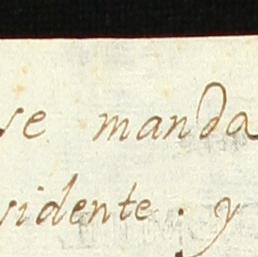 se manda
sidente. y